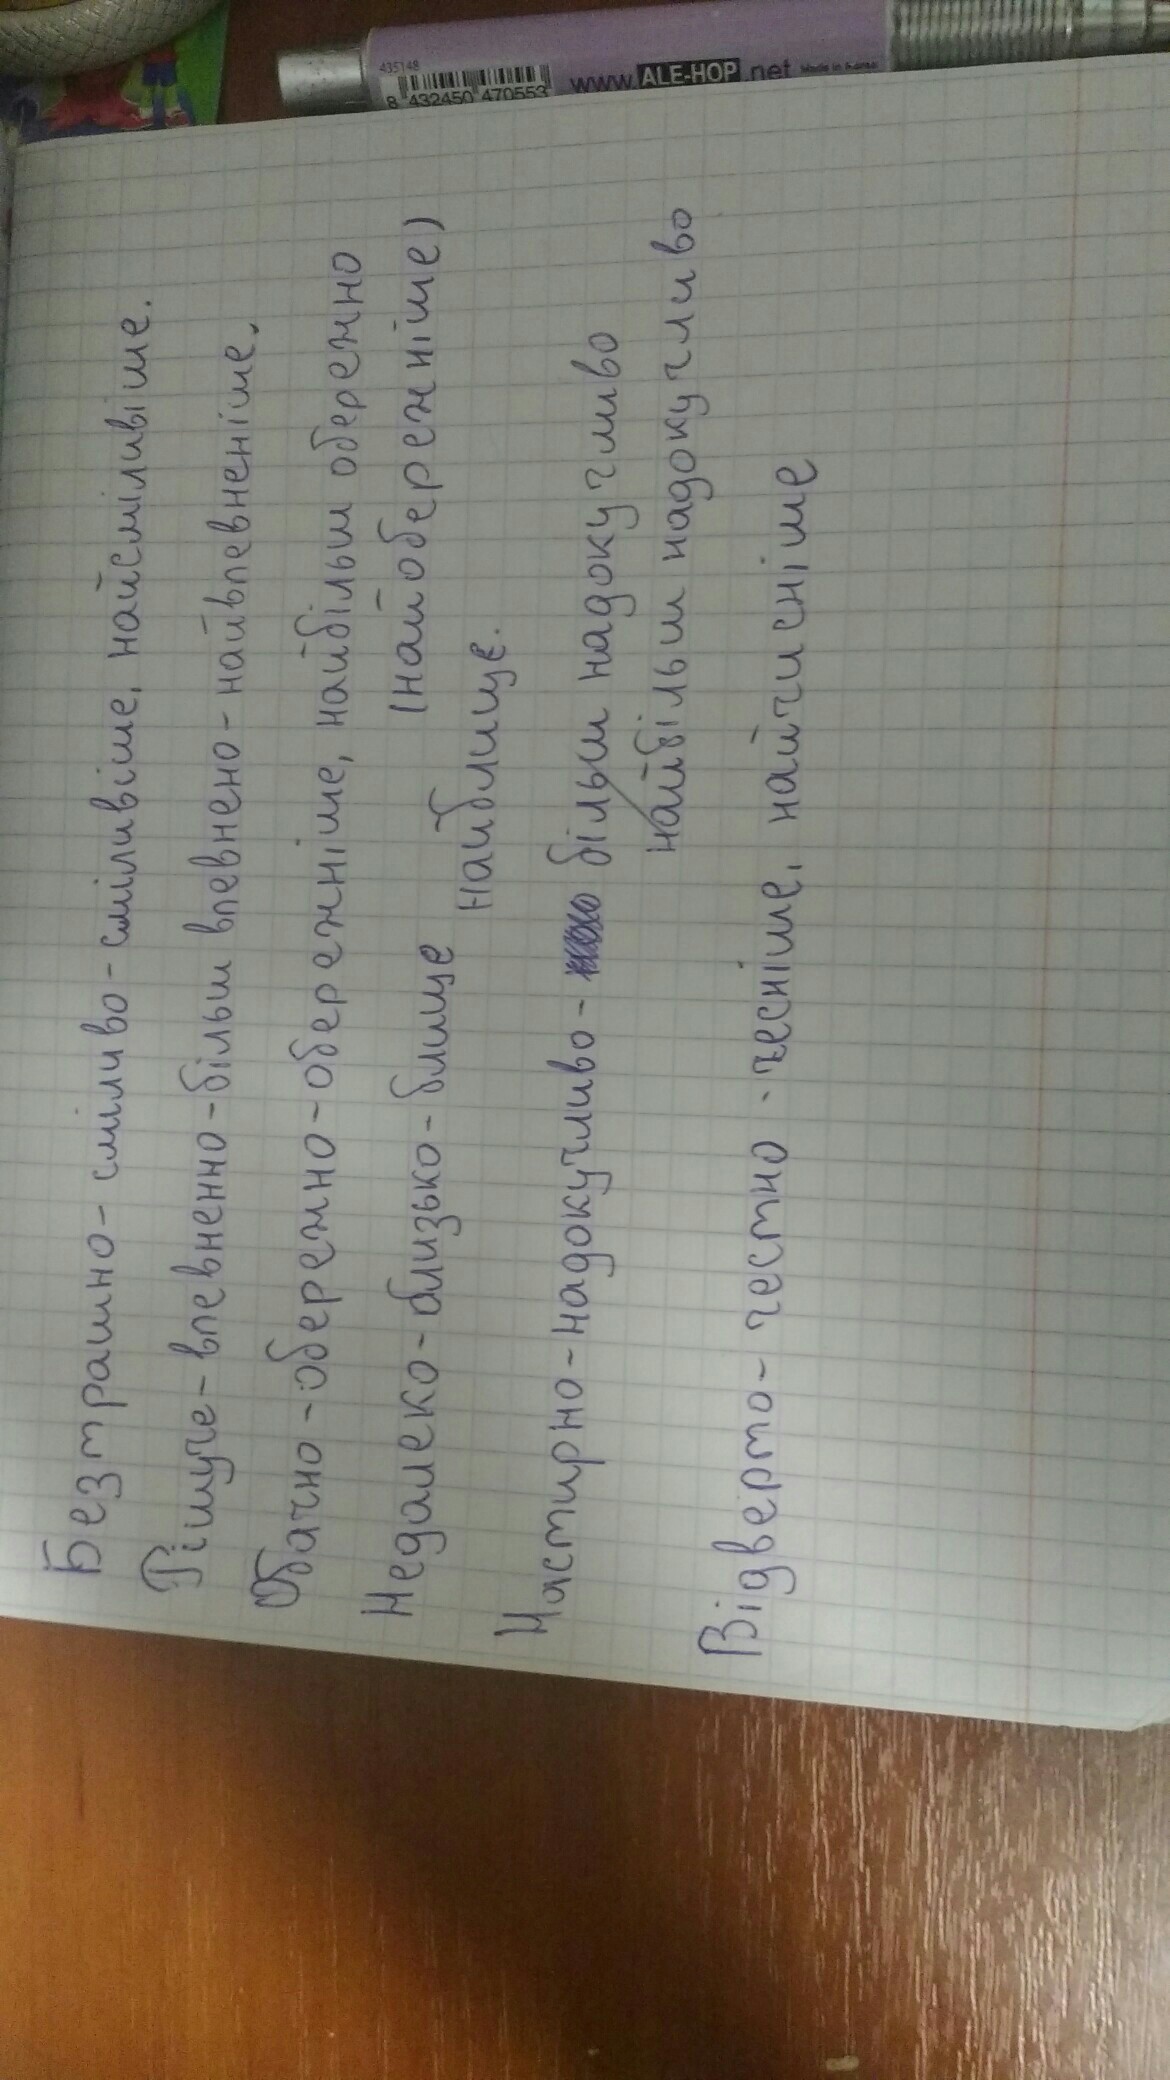 435148
8 432450 470553
www.ALE-HOP.net Made in Korea
Безтрашно - сміливо - сміливіше, найсміливіше.
Рішуче - впевненно - більш впевнено - найвпевненіше.
Обачно - обережно - обережніше, найбільш обережно
(найобережніше)
Недалеко - близько - блище
найблище.
Настирно - надокучливо - більш надокучливо
найбільш надокучливо
Відверто - честно - чесніше, найчисніше